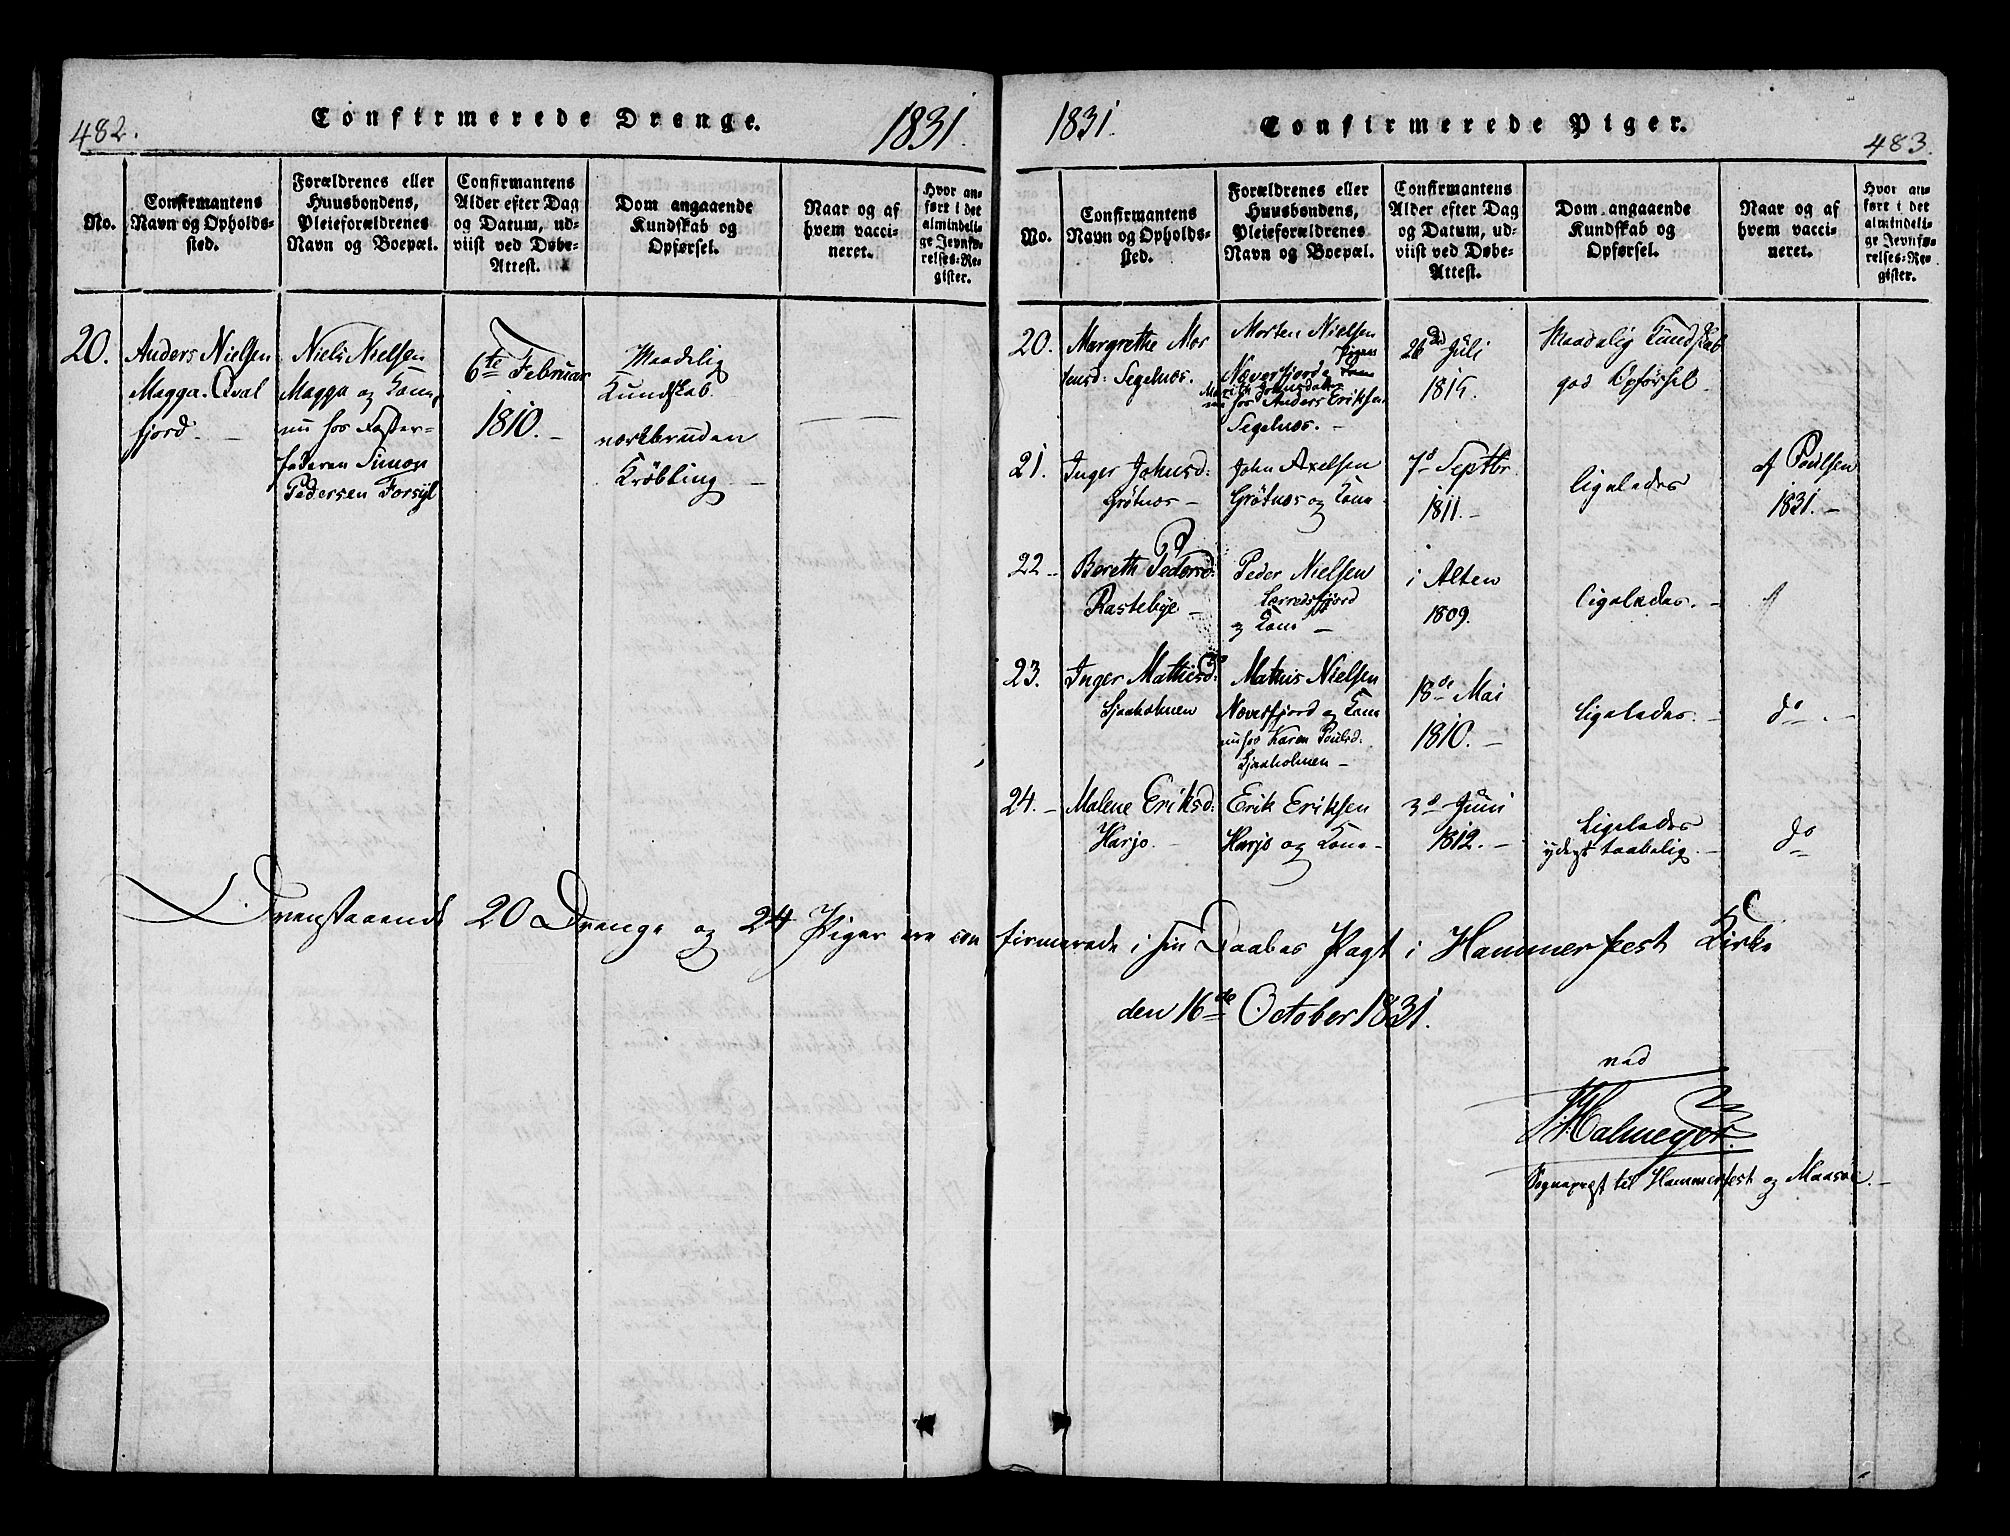 482.
Confirmerede Drenge.
1831.
No.
Confirmantens
Navn og Opholds-
sted.
Forældrenes eller
Huusbondens,
Pleieforældrenes
Navn og Boepæl.
Confirmantens
Alder efter Dag
og Datum, ud-
viist ved Døbe-
Attest.
Dom angaaende
Kundskab og
Opførsel.
Naar og af
hvem vacci-
neret.
Hvor an-
ført i det
almindeli-
ge Jevnfø-
relses-Re-
gister.
20.
Anders Nielsen
Magga. Qval
fjord. -
Niels Nielsen
Magga og Kone,
nu hos Foster-
faderen Simon
Pedersen
6te Februar
1810. -
Maadelig
Kundskab.
Krøbling. -
1831.
Confirmerede Piger.
483.
No.
Confirmantens
Navn og Opholds-
sted.
Forældrenes eller
Huusbondens,
Pleieforældrenes
Navn og Boepæl.
Confirmantens
Alder efter Dag
og Datum, ud-
viist ved Døbe-
Attest.
Dom angaaende
Kundskab og
Opførsel.
Naar og af
hvem vacci-
neret.
Hvor an-
ført i det
almindeli-
ge Jevnfø-
relses-Re-
gister.
20.
Margrethe Mor
tensd: Segelnæs.
Morten Nielsen
Næverfjord
nu hos Anders Eriksen
Segelnæs. -
Juli
Maadelig Kundskab
god Opførsel
21.
Inger Johnsd:
Grøtnæs -
John Axelsen
Grøtnæs og Kone -
7de Septbr
1811. -
ligeledes
af Poulsen
1831. -
22 -
Bereth Pedersd:
Rastebye -
Peder Nielsen
Lerredsfjord
og Kone -
i Alten
1809.
ligeledes. -
23.
Inger Mathisd:
Mathis Nielsen
Næverfjord og Kone
nu hos Karen Poulsd:
18de Mai
1810. -
ligeledes. -
do. -
24. -
Malene Eriksd:
Harjo. -
Erik Eriksen
Harjo og Kone -
3de Juni
1812. -
Ligeledes
yderst taabelig. -
do
Ovenstaaende 20 Drenge og 24 Piger ere confirmerede i sin Daabes Pagt i Hammerfest Kirke
den 16de October 1831.
ved
Halmeyer.
Sognepræst til Hammerfest og Maasøe. -